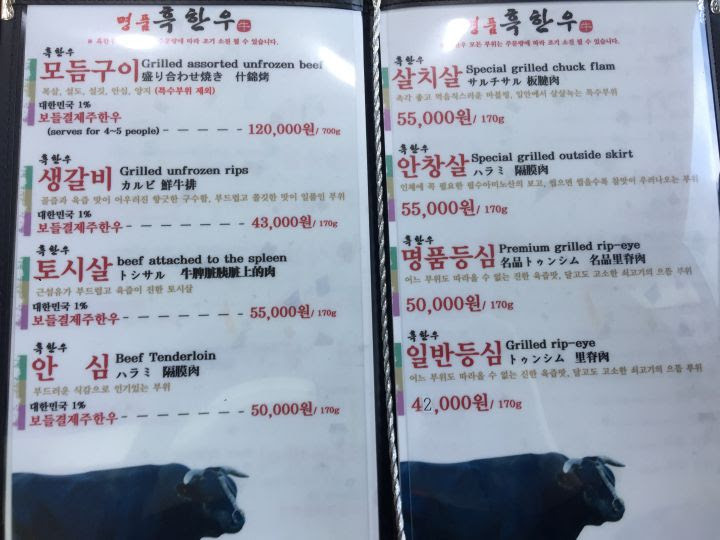 명품흑한우 牛
흑한우
모듬구이 Grilled assorted unfrozen beef
盛り合わせ焼き 什錦烤
목살, 설도, 설깃, 안심, 양지 (특수부위 제외)
대한민국 1%
보들결제주한우
(serves for 4~5 people) - - - - - 120,000원/ 700g
흑한우
생갈비 Grilled unfrozen rips
カルビ 鮮牛排
골즙과 육즙 맛이 어우러진 향긋한 구수함, 부드럽고 쫄깃한 맛이 일품인 부위
대한민국 1%
보들결제주한우 - - - - - - - 43,000원/ 170g
흑한우
토시살 beef attached to the spleen
トシサル 牛脾脏胰脏上的肉
근섬유가 부드럽고 육즙이 진한 토시살
대한민국 1%
보들결제주한우 - - - - - - - 55,000원/ 170g
흑한우
안 심 Beef Tenderloin
ハラミ 隔膜肉
부드러운 식감으로 인기있는 부위
대한민국 1%
보들결제주한우 - - - - - - - 50,000원/ 170g
명품흑한우 牛
모든 부위는 주문량에 따라 조기 소진 될 수 있습니다.
흑한우
살치살 Special grilled chuck flam
サルチサル 板腱肉
촉각 좋고 먹음직스러운 마블링, 입안에서 살살녹는 특수부위
55,000원/ 170g
흑한우
안창살 Special grilled outside skirt
ハラミ 隔膜肉
인체에 꼭 필요한 필수아미노산의 보고, 씹으면 씹을수록 참맛이 우러나오는 부위
55,000원/ 170g
흑한우
명품등심 Premium grilled rip-eye
名品トゥンシム 名品里脊肉
어느 부위도 따라올 수 없는 진한 육즙맛, 달고도 고소한 쇠고기의 으뜸 부위
50,000원/ 170g
흑한우
일반등심 Grilled rip-eye
トゥンシム 里脊肉
어느 부위도 따라올 수 없는 진한 육즙맛, 달고도 고소한 쇠고기의 으뜸 부위
42,000원/ 170g